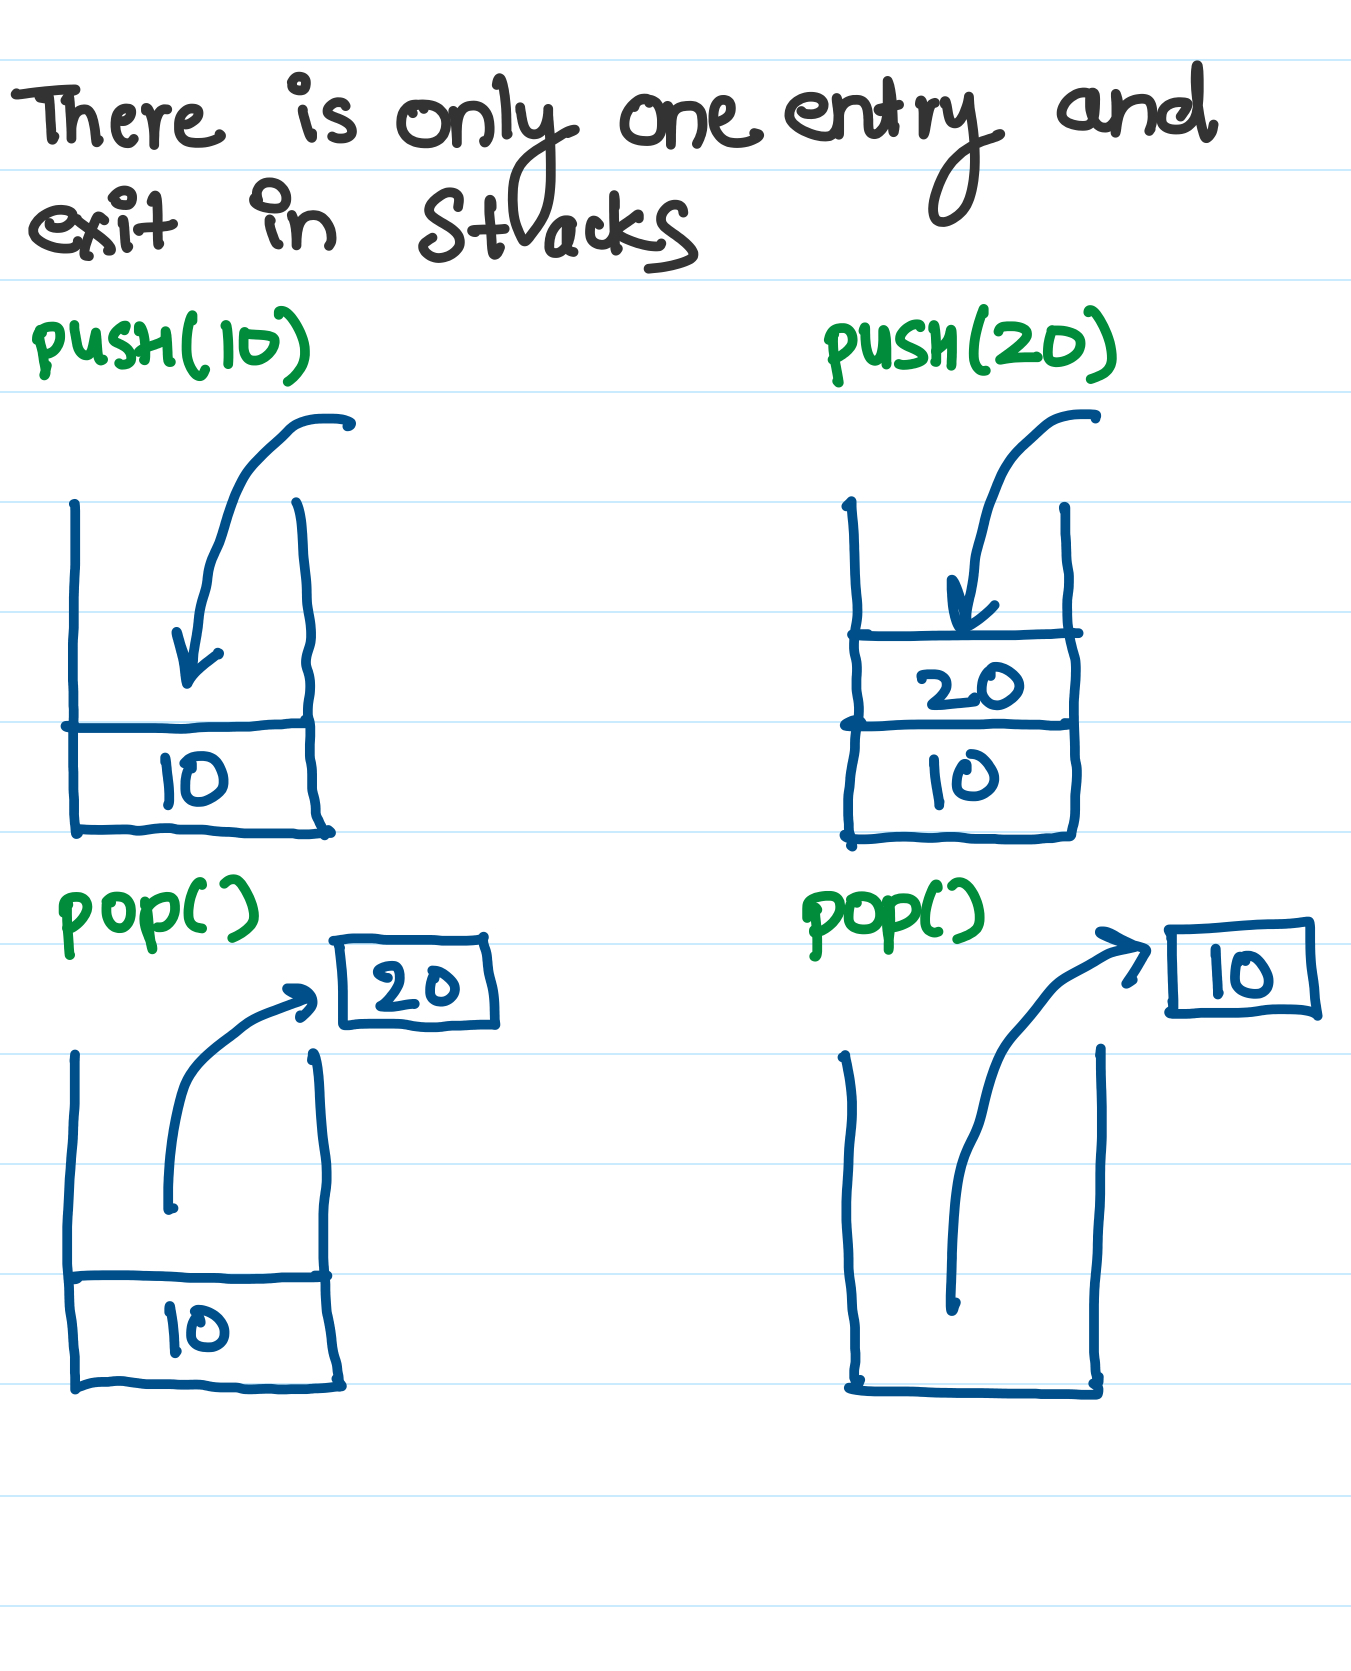 There is only one entry and
exit in Stacks
push(10) push(20)
20
10 10
pop() pop()
20 10
10